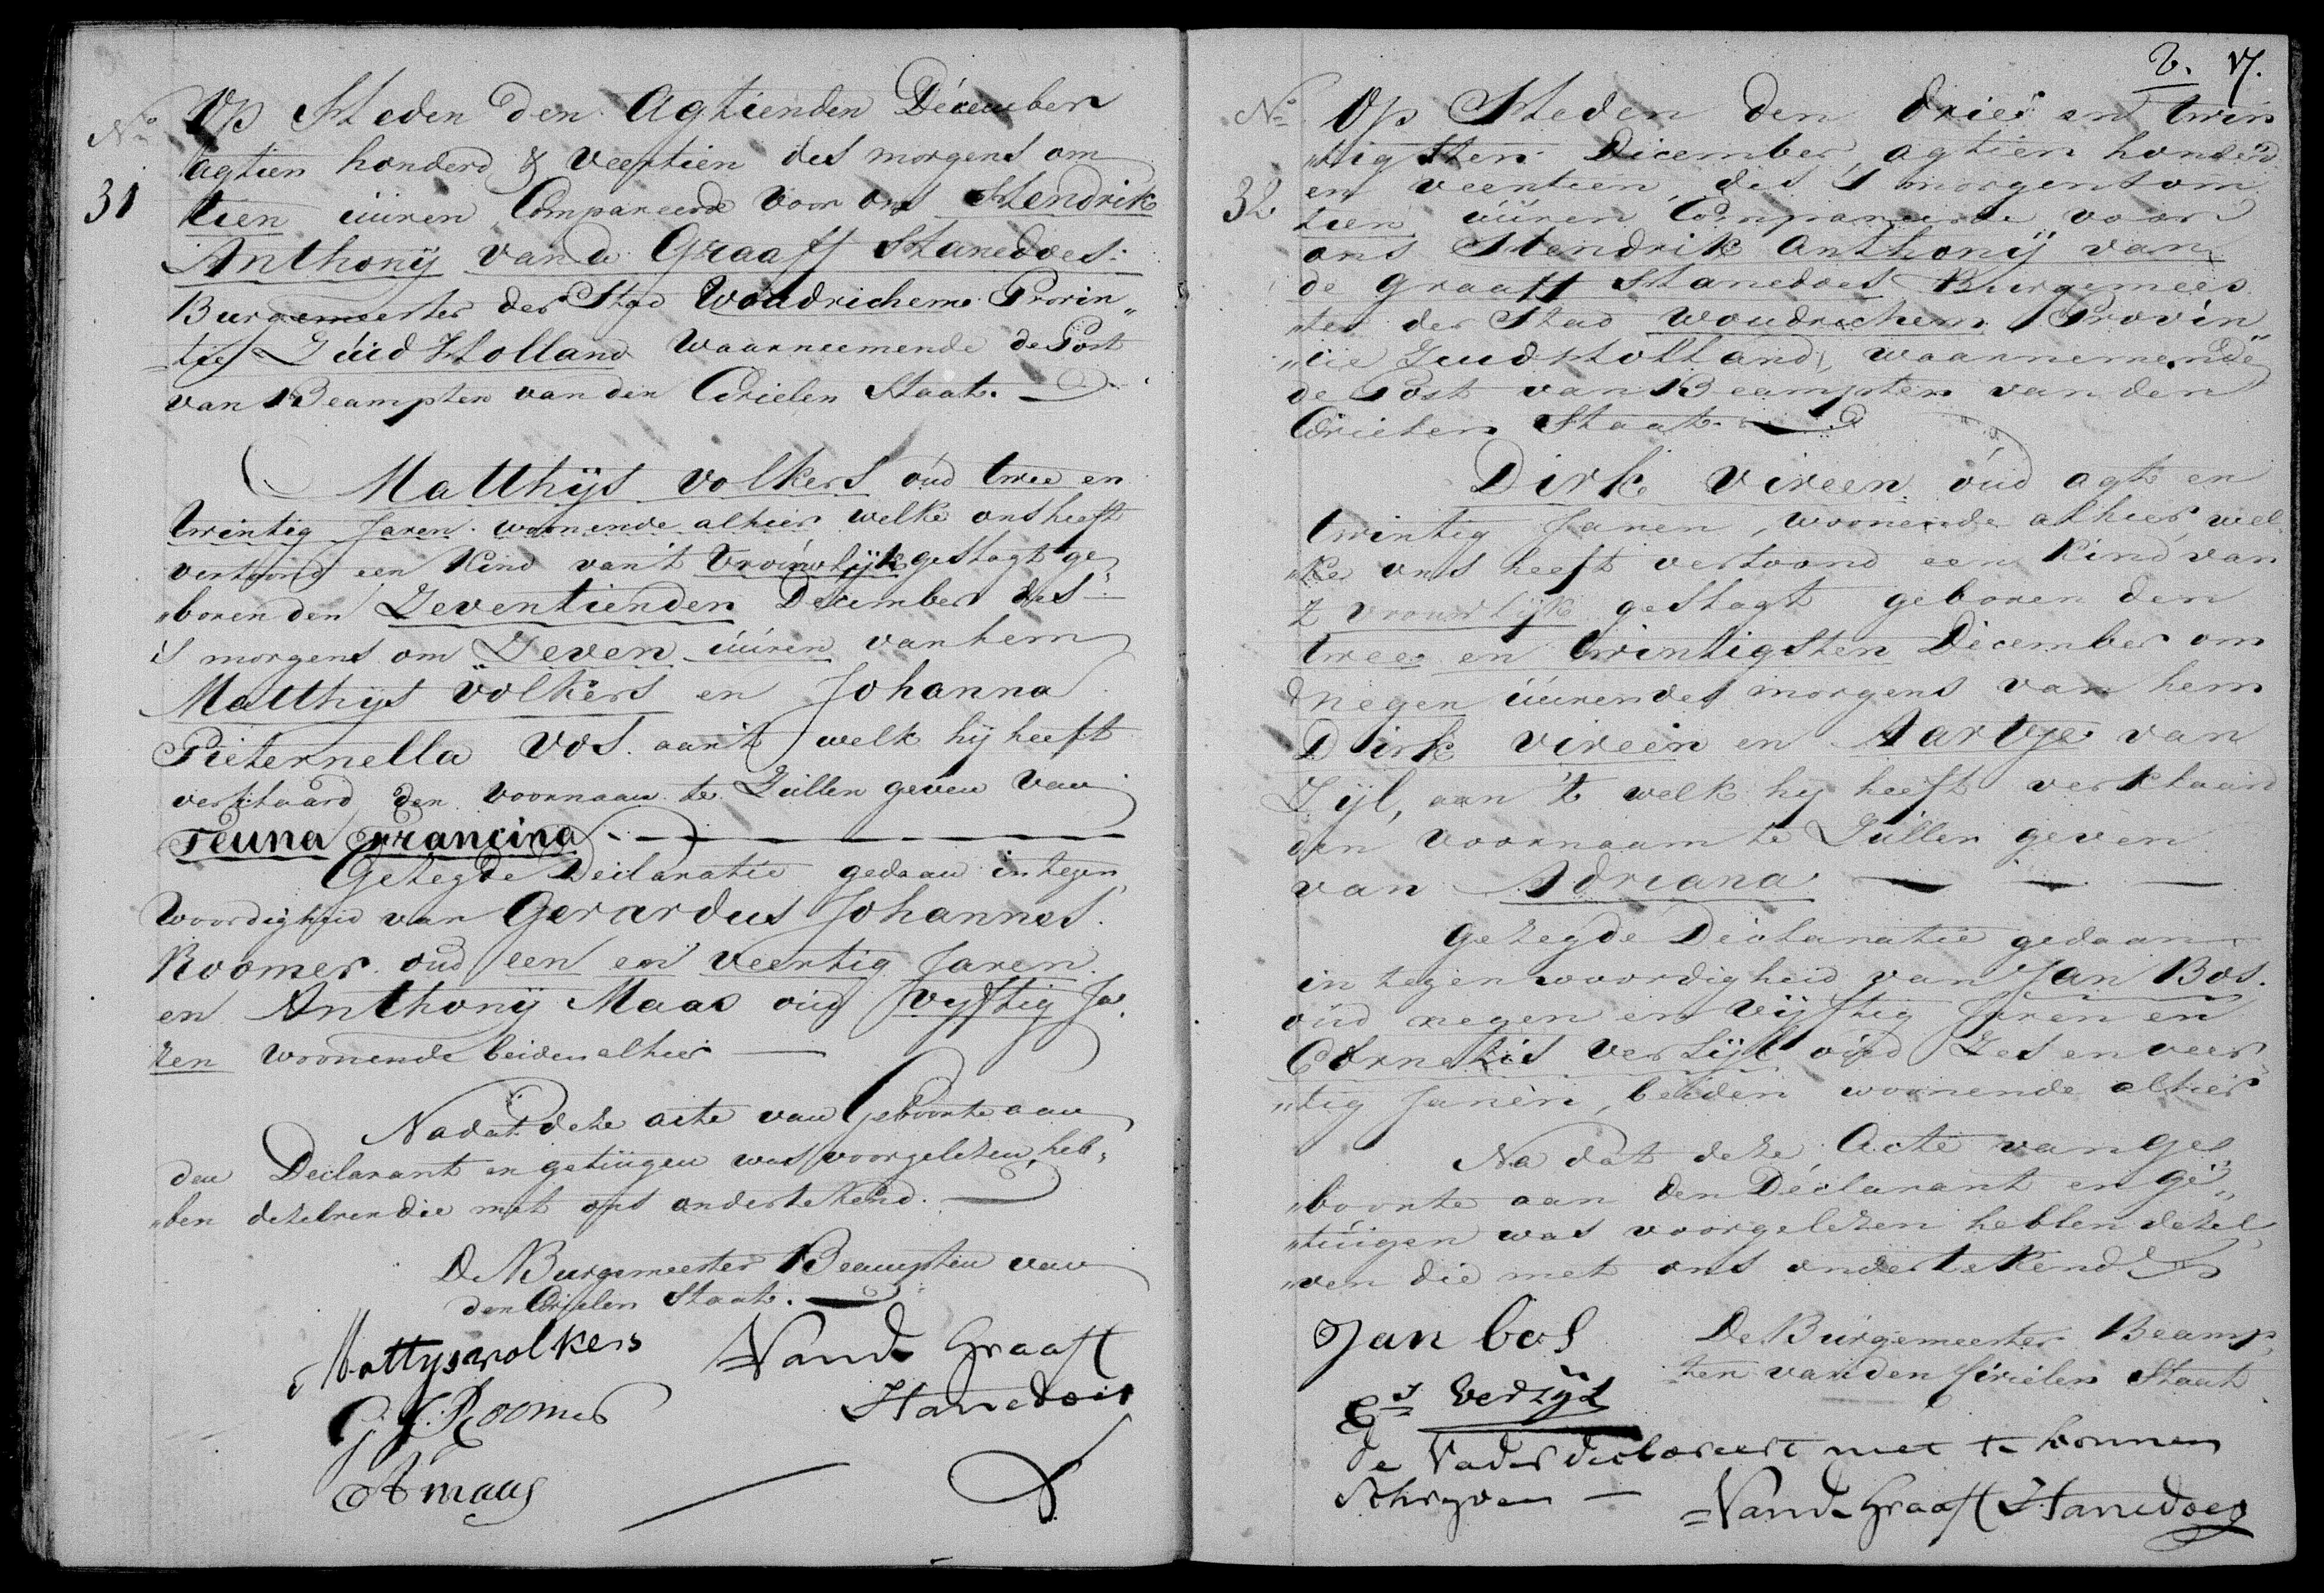 No
31
Op Heden den Agtienden December
agtien honderd & veertien des morgens om
tien úúren, Compareerde voor ons Hendrik
Anthonij van de Graaff Hanedoes
Burgemeester der Stad Woudrichem Provin„
tie Zúid Holland waarneemende de Post
van Beampten van den Civielen Staat.
Matthijs Volkers oúd twee en
twintig Jaren woonende alhier welke ons heeft
vertoond een Kind van't vroúwlijk geslagt ge
„boren den Zeventienden December des
's morgens om Zeven úúren van hem
Matthijs Volkers en Johanna
Pieternella Vos aan't welk hij heeft
verklaard den voornaam te Zullen geven van
Teuna Francina
Gezegde Declaratie gedaan in tegen
woordigheid van Gerardus Johannes
Roomer oud een en veertig Jaren
en Anthonij Maas oud vyftig Ja
ren woonende beiden alhier
Nadat deze acte van Geboorte aan
den Declarant en getúigen was voorgelezen, heb„
„ben dezelven die met ons ondertekend.
De Burgemeester Beampten van
den Civielen Staat.
Mattys volkers Vand Graaff
Hanedoes
G J Roomer
A maas
2. 17.
No
32
Op Heden den drie en twin
„tigsten December, agtien honderd
en veertien, des 's morgens om
tien úúren Compareerde voor
ons Hendrik Anthonij van
de Graaff Hanedoes Burgemees
„ter der Stad Woudrichem Provin„
„cie Zuud Holland, waarnemende
de Post van Beampten van den
Civielen Staat.
Dirk Vireen oúd agt en
twintig Jaren, woonende alhier, wel
„ke ons heeft vertoond een Kind van
t vrouwlijk geslagt geboren den
twee en twintigsten December om
negen úúren des morgens van hem
Dirk Vireen en Aartje van
Zijl, aan 't welk hy heeft verklaard
den voornaam te Zullen geven
van Adriana
Gezegde Declaratie gedaan
in tegenwoordigheid van Jan Bos.
oúd negen en vijftig Jaren en
Cornelis Verzijl oúd Zes en veer
„tig Jaren, beiden woonende alhier
Na dat deze Acte van ge
„boorte aan den Déclarant en ge„
„túigen was voorgelezen hebben dezel
„ven die met ons ondertekend
Jan bos De Búrgemeester Beamp
ten van den Civielen Staat
Cs Verzijl
de Vader declareert niet te konnen
schryven
Vand Graaff Hanedoes